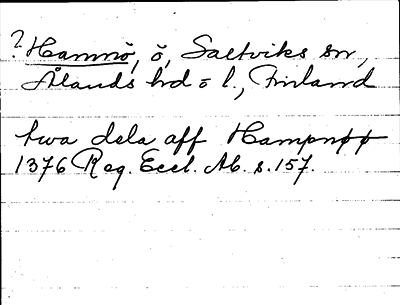 ? Hamnö, ö, Saltviks sn,
Ålands hd o l., Finland
twa dela aff Hampnøø
1376 Reg. Eccl. Ab. s. 157.